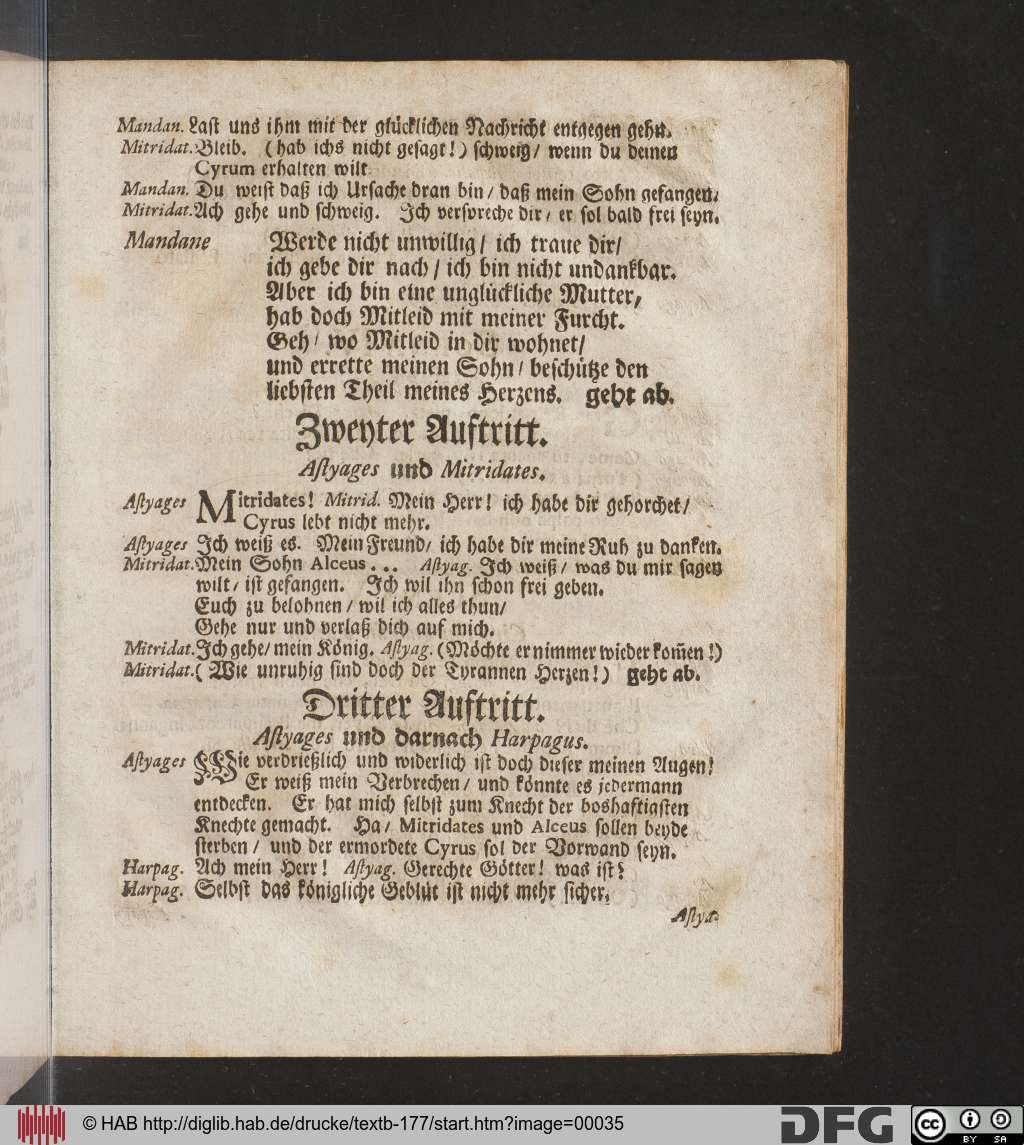 Mandan. Last uns ihm mit der glücklichen Nachricht entgegen gehn.
Mitridat. Bleib. (hab ichs nicht gesagt!) schweig/ wenn du deinen
Cyrum erhalten wilt
Mandan. Du weist daß ich Ursache dran bin/ daß mein Sohn gefangen.
Mitridat. Ach gehe und schweig. Ich verspreche dir/ er sol bald frei seyn.
Mandane Werde nicht unwillig/ ich traue dir/
ich gebe dir nach/ ich bin nicht undankbar.
Aber ich bin eine unglückliche Mutter,
hab doch Mitleid mit meiner Furcht.
Geh/ wo Mitleid in dir wohnet/
und errette meinen Sohn/ beschütze den
liebsten Theil meines Herzens. geht ab.
Zweyter Auftritt.
Astyages und Mitridates.
Astyages Mitridates! Mitrid. Mein Herr! ich habe dir gehorchet/
Cyrus lebt nicht mehr.
Astyages Ich weiß es. Mein Freund/ ich habe dir meine Ruh zu danken.
Mitridat. Mein Sohn Alceus... Astyag. Ich weiß/ was du mir sagen
wilt/ ist gefangen. Ich wil ihn schon frei geben.
Euch zu belohnen/ wil ich alles thun/
Gehe nur und verlaß dich auf mich.
Mitridat. Ich gehe/ mein König. Astyag. (Möchte er nimmer wieder kom̃en!)
Mitridat. (Wie unruhig sind doch der Tyrannen Herzen!) geht ab.
Dritter Auftritt.
Astyages und darnach Harpagus.
Astyages Wie verdrießlich und widerlich ist doch dieser meinen Augen!
Er weiß mein Verbrechen/ und könnte es jedermann
entdecken. Er hat mich selbst zum Knecht der boshaftigsten
Knechte gemacht. Ha/ Mitridates und Alceus sollen beyde
sterben/ und der ermordete Cyrus sol der Vorwand seyn.
Harpag. Ach mein Herr! Astyag. Gerechte Götter! was ist?
Harpag. Selbst das königliche Geblüt ist nicht mehr sicher.
Astya.
© HAB http://diglib.hab.de/drucke/textb-177/start.htm?image=00035
DFG
cc BY SA